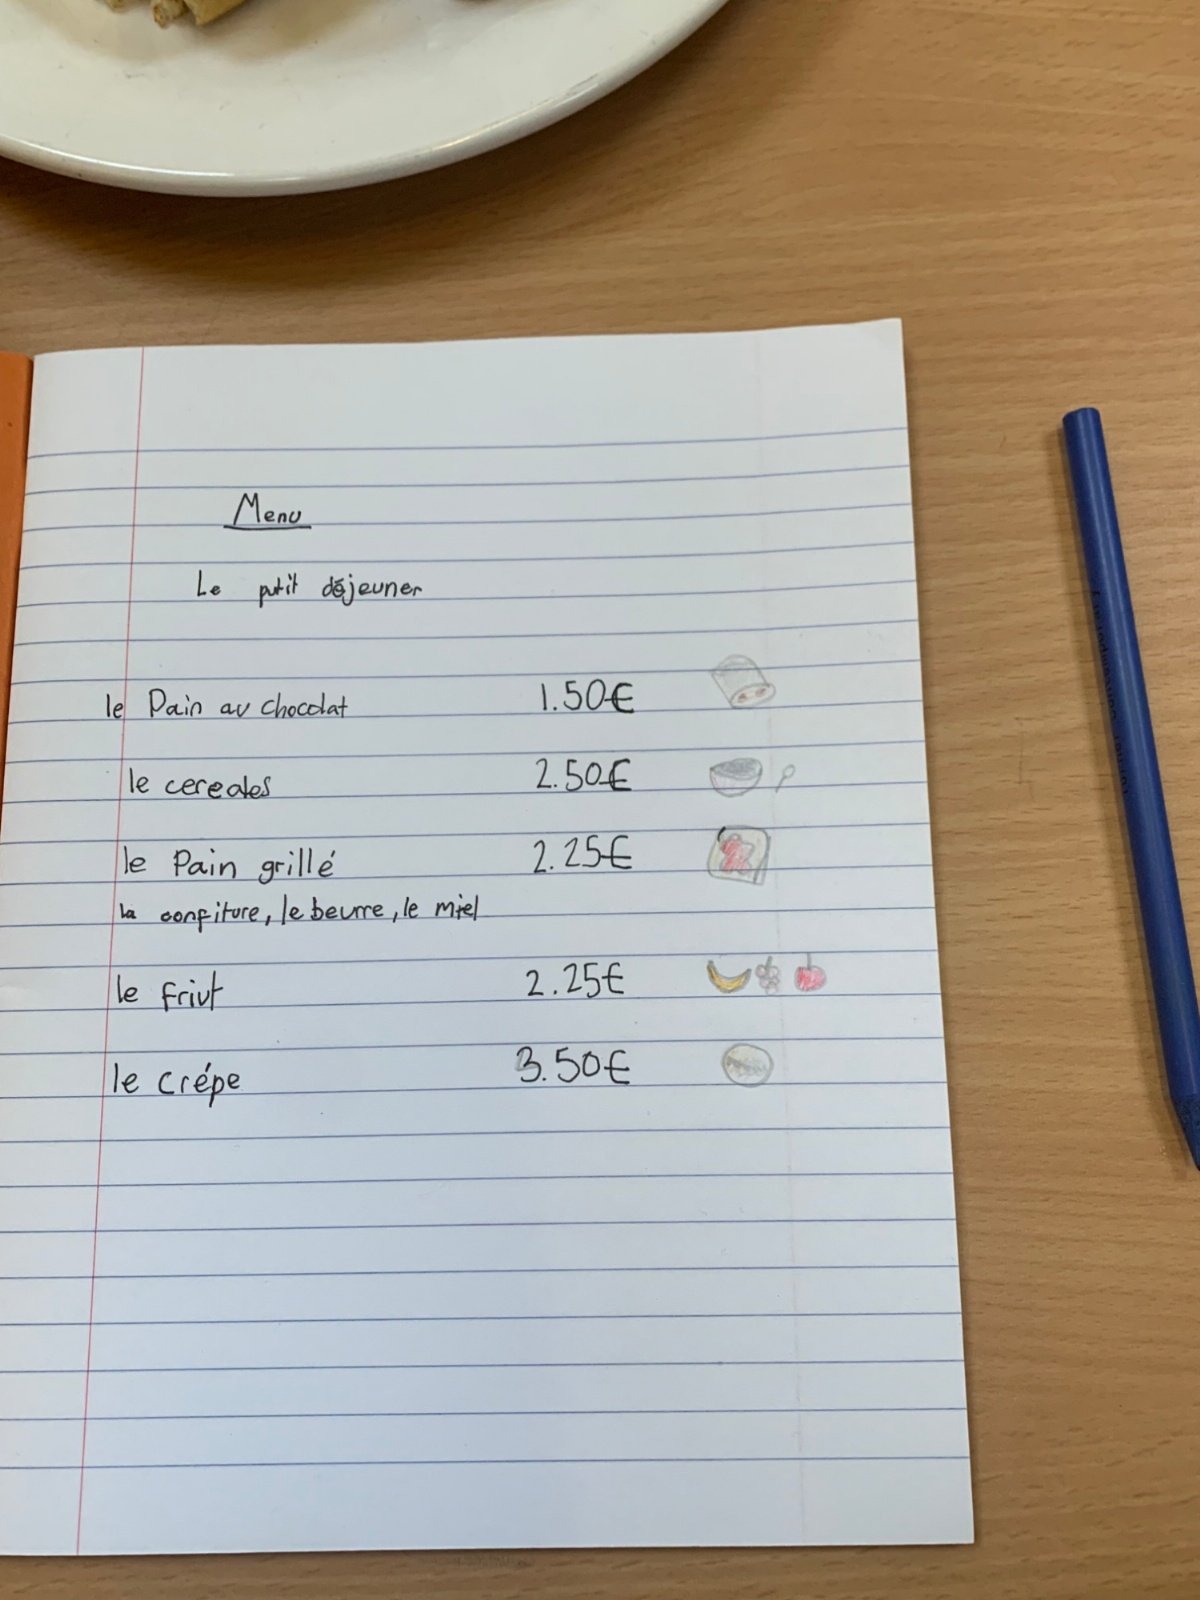 Menu
Le putit déjeuner
le Pain au chocolat 1.50€
le cereales 2.50€
le Pain grillé 2.25€
la confiture, le beurre, le miel
le friut 2.25€
le crépe 3.50€